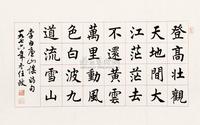 登高壯觀
天地間大
江茫茫去
不還黃雲
萬里動風
色白波九
道流雪山
李白廬山謠詩句
一九七六年冬任政